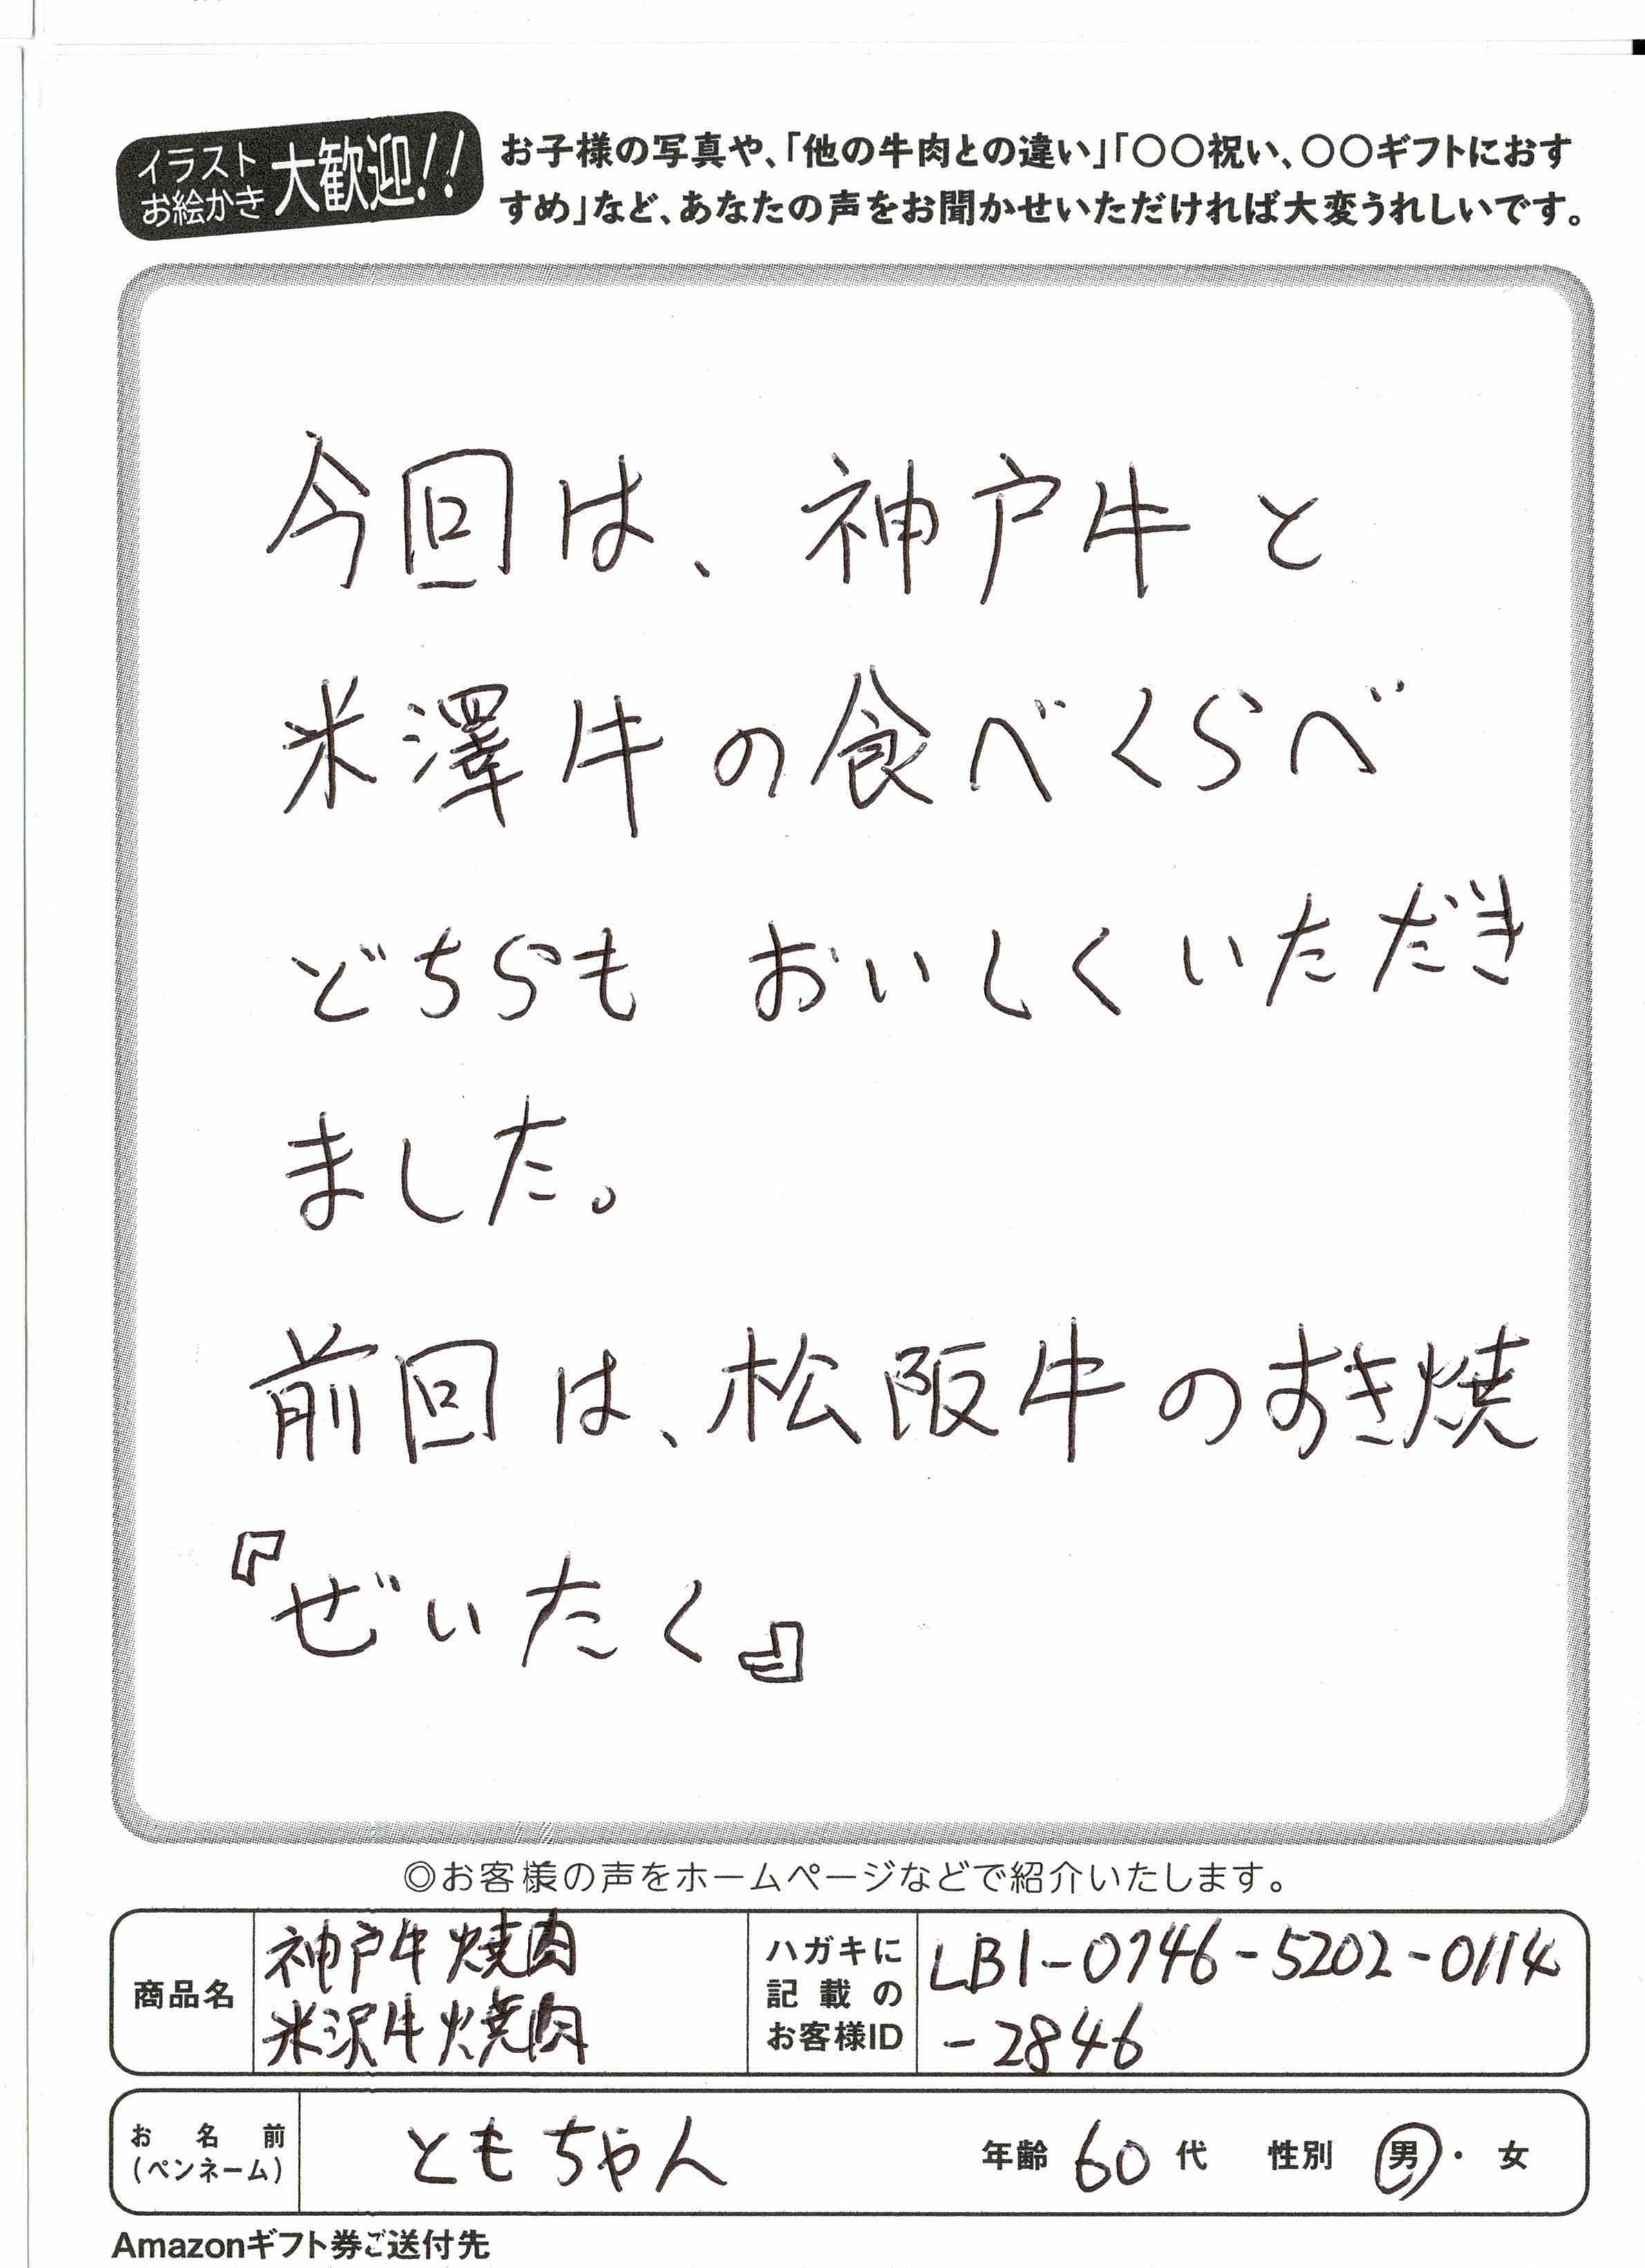 イラスト
お絵かき
大歓迎!!
お子様の写真や、「他の牛肉との違い」「〇〇祝い、〇〇ギフトにおす
すめ」など、あなたの声をお聞かせいただければ大変うれしいです。
今回は、神戸牛と
米澤牛の食べくらべ
どちらも おいしくいただき
ました。
前回は、松阪牛のすき焼
『ぜいたく』
◎お客様の声をホームページなどで紹介いたします。
商品名
神戸牛焼肉
米沢牛焼肉
ハガキに
記載の
お客様ID
LB1-0746-5202-0114
-2846
お名前
(ペンネーム)
ともちゃん
年齢 60 代 性別 男・女
Amazonギフト券ご送付先